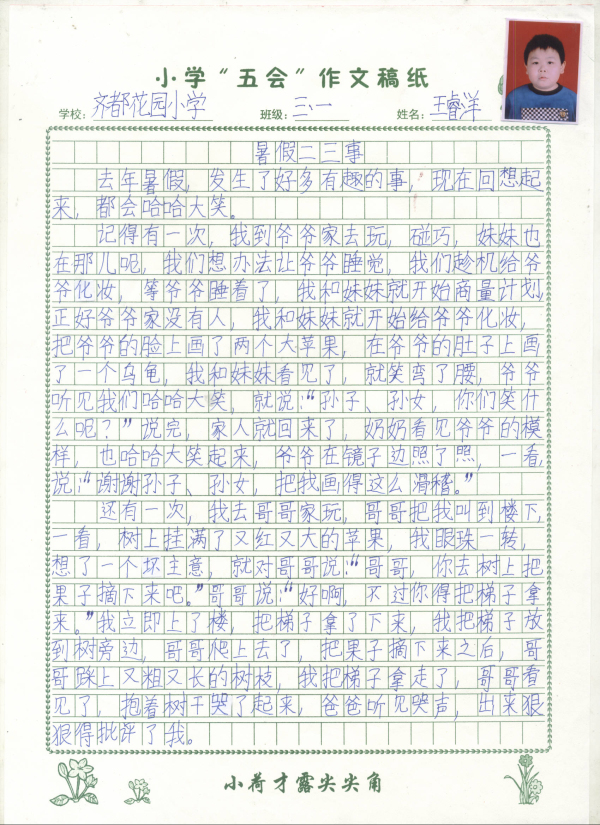 小学“五会”作文稿纸
学校:齐都花园小学 班级:三、一 姓名:王睿洋
暑假二三事
去年暑假，发生了好多有趣的事，现在回想起
来，都会哈哈大笑。
记得有一次，我到爷爷家去玩，碰巧，妹妹也
在那儿呢，我们想办法让爷爷睡觉，我们趁机给爷
爷化妆，等爷爷睡着了，我和妹妹就开始商量计划，
正好爷爷家没有人，我和妹妹就开始给爷爷化妆，
把爷爷的脸上画了两个大苹果，在爷爷的肚子上画
了一个乌龟，我和妹妹看见了，就笑弯了腰，爷爷
听见我们哈哈大笑，就说：“孙子、孙女，你们笑什
么呢？”说完，家人就回来了，奶奶看见爷爷的模
样，也哈哈大笑起来，爷爷在镜子边照了照，一看，
说：“谢谢孙子、孙女，把我画得这么滑稽。”
还有一次，我去哥哥家玩，哥哥把我叫到楼下，
一看，树上挂满了又红又大的苹果，我眼珠一转，
想了一个坏主意，就对哥哥说：“哥哥，你去树上把
果子摘下来吧。”哥哥说：“好啊，不过你得把梯子拿
来。”我立即上了楼，把梯子拿了下来，我把梯子放
到树旁边，哥哥爬上去了，把果子摘下来之后，哥
哥踩上又粗又长的树枝，我把梯子拿走了，哥哥看
见了，抱着树干哭了起来，爸爸听见哭声，出来狠
狠得批评了我。
小荷才露尖尖角